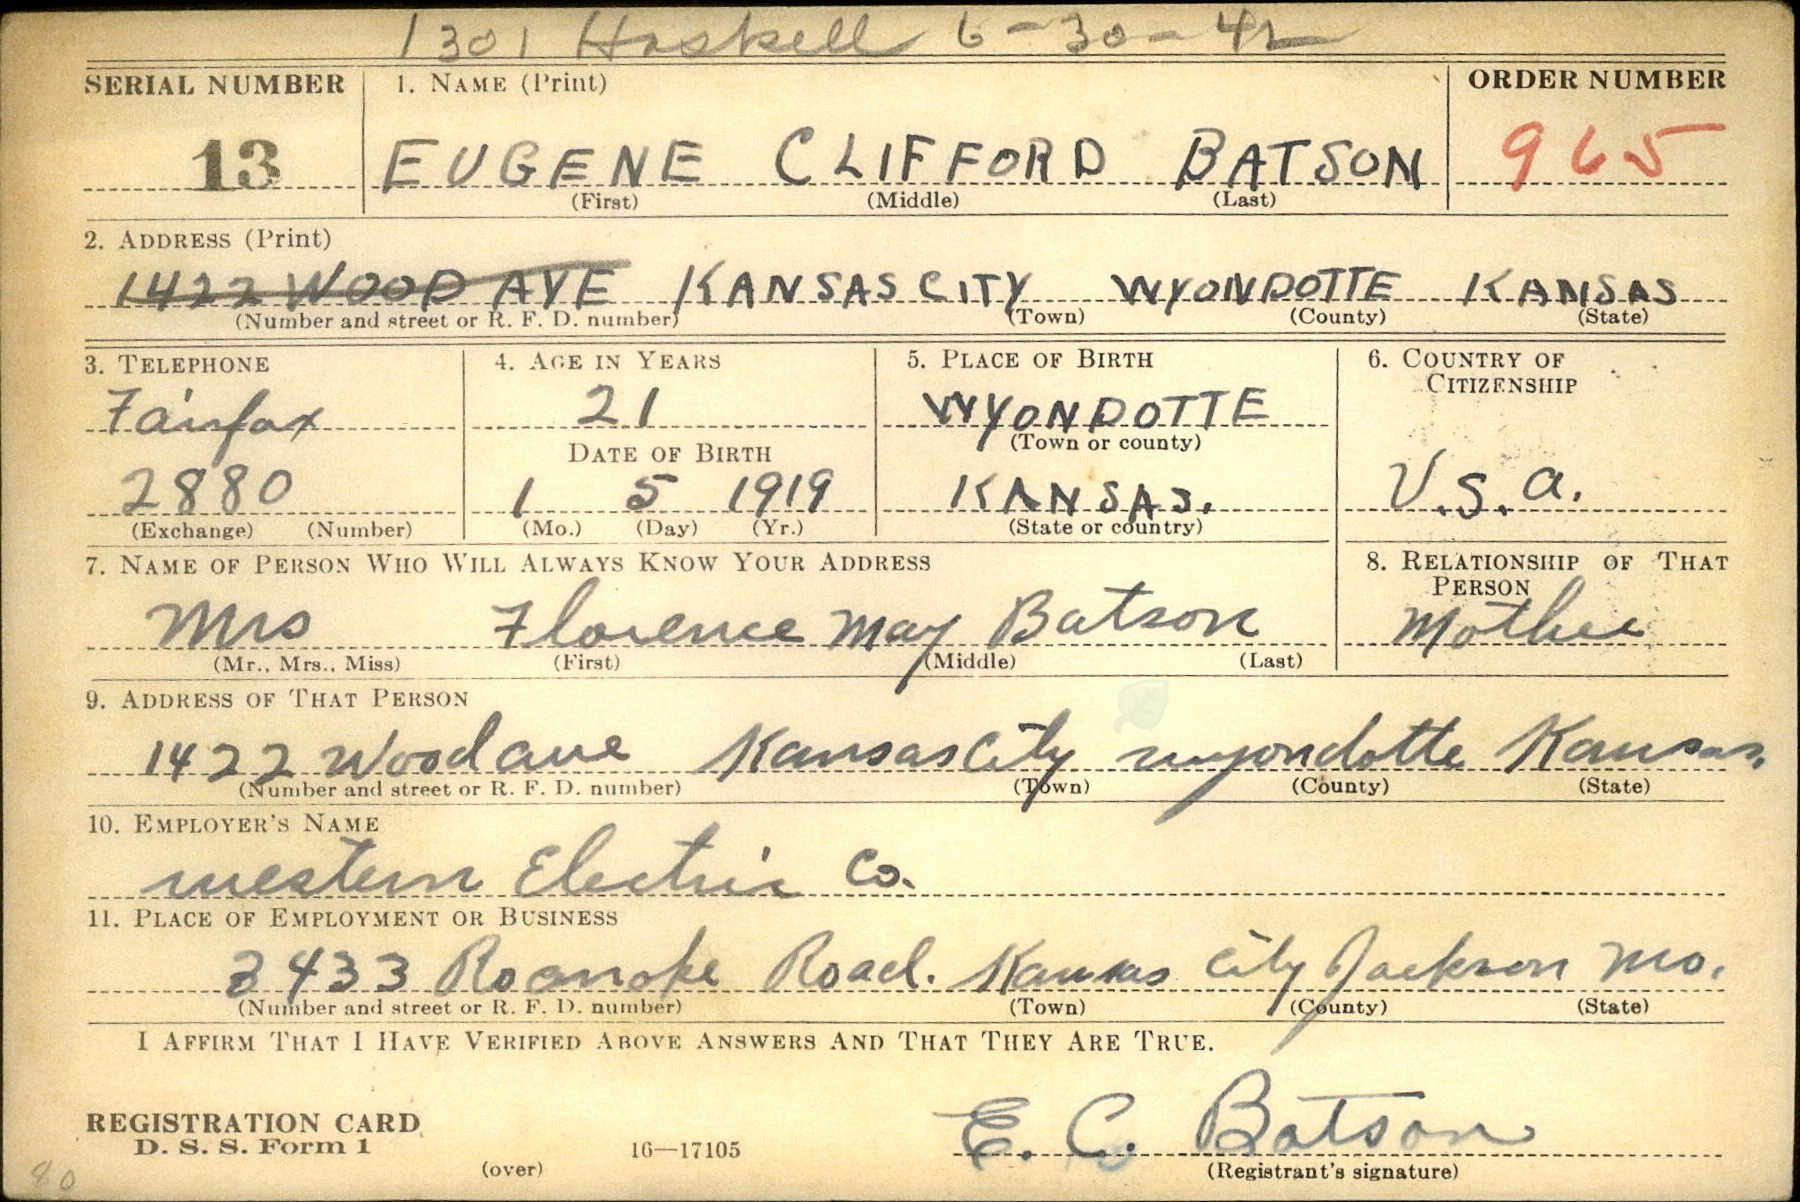 1301 Haskell 6-30-42
SERIAL NUMBER 1. NAME (Print) ORDER NUMBER
13 EUGENE CLIFFORD BATSON 965
(First) (Middle) (Last)
2. ADDRESS (Print)
1422 WOOD AVE KANSAS CITY WYONDOTTE KANSAS
(Number and street or R. F. D. number) (Town) (County) (State)
3. TELEPHONE 4. AGE IN YEARS 5. PLACE OF BIRTH 6. COUNTRY OF CITIZENSHIP
Fairfax 21 WYONDOTTE
DATE OF BIRTH (Town or county)
2880 1 5 1919 KANSAS. U.S.A.
(Exchange) (Number) (Mo.) (Day) (Yr.) (State or country)
7. NAME OF PERSON WHO WILL ALWAYS KNOW YOUR ADDRESS 8. RELATIONSHIP OF THAT PERSON
Mrs Florence May Batson Mother
(Mr., Mrs., Miss) (First) (Middle) (Last)
9. ADDRESS OF THAT PERSON
1422 Wood ave Kansas City wyondotte Kansas.
(Number and street or R. F. D. number) (Town) (County) (State)
10. EMPLOYER'S NAME
western Electric Co.
11. PLACE OF EMPLOYMENT OR BUSINESS
3433 Roanoke Road. Kansas City Jackson Mo.
(Number and street or R. F. D. number) (Town) (County) (State)
I AFFIRM THAT I HAVE VERIFIED ABOVE ANSWERS AND THAT THEY ARE TRUE.
REGISTRATION CARD E. C. Batson
D. S. S. Form 1 16—17105
(over) (Registrant's signature)
80